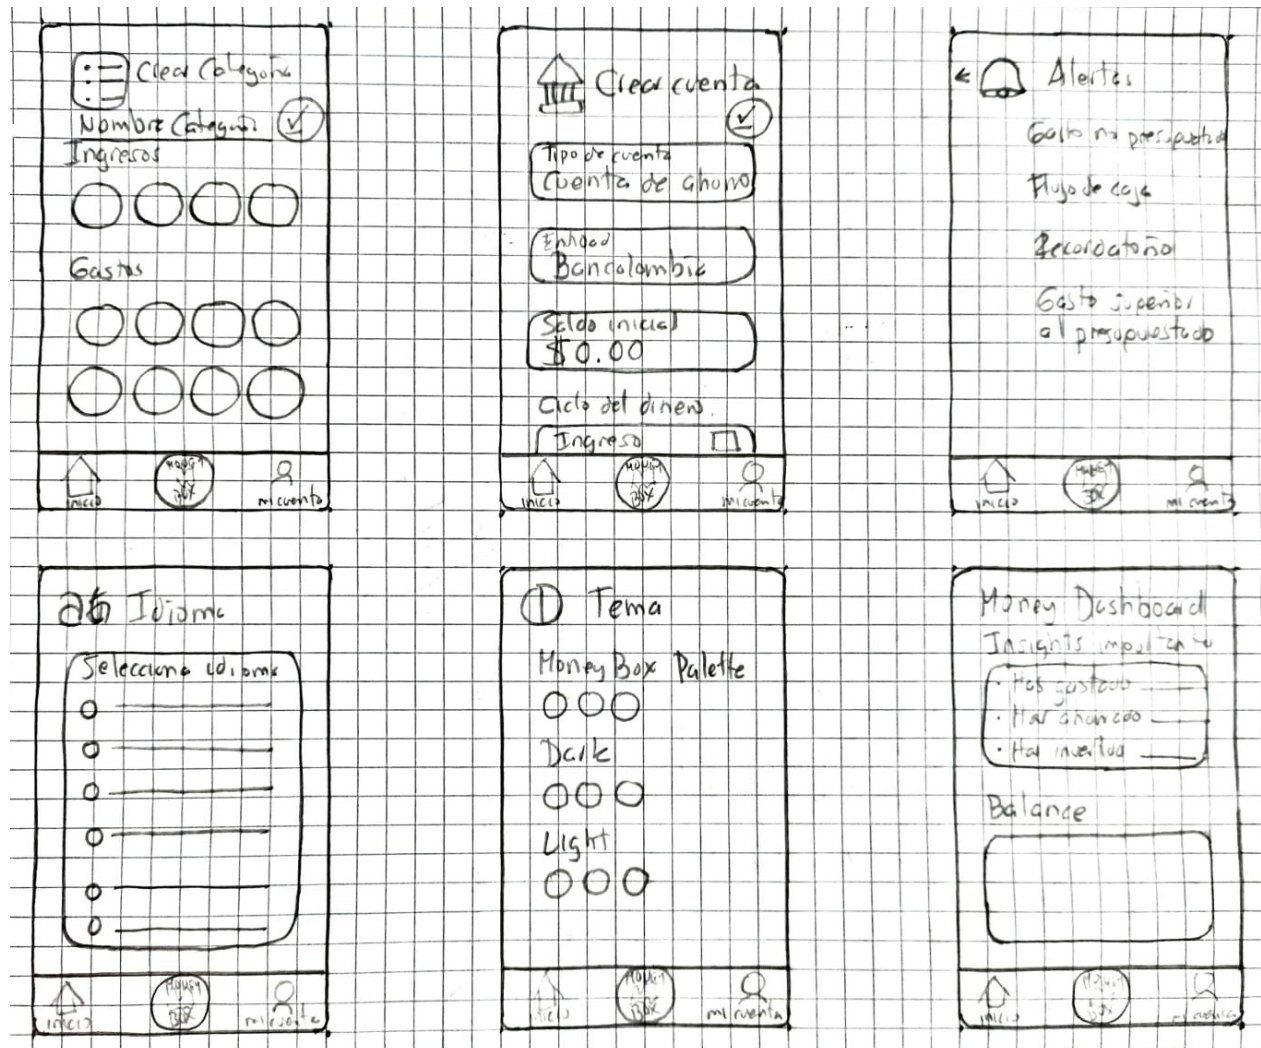 Crear Categoría
Nombre Categoría
Ingresos
Gastos
inicio
MONEY
BOX
mi cuenta
Crear cuenta
Tipo de cuenta
Cuenta de ahorro
Entidad
Bancolombia
Saldo inicial
$0.00
Ciclo del dinero.
Ingreso
inicio
MONEY
BOX
mi cuenta
Alertas
Gasto no presupuestado
Flujo de caja
Recordatorio
Gasto superior
al presupuestado
inicio
MONEY
BOX
mi cuenta
Idioma
Selecciona idioma
inicio
MONEY
BOX
mi cuenta
Tema
MoneyBox Palette
Dark
Light
inicio
MONEY
BOX
mi cuenta
Money Dashboard
Insights importante
· Has gastado
· Has ahorrado
· Has invertido
Balance
inicio
MONEY
BOX
mi cuenta